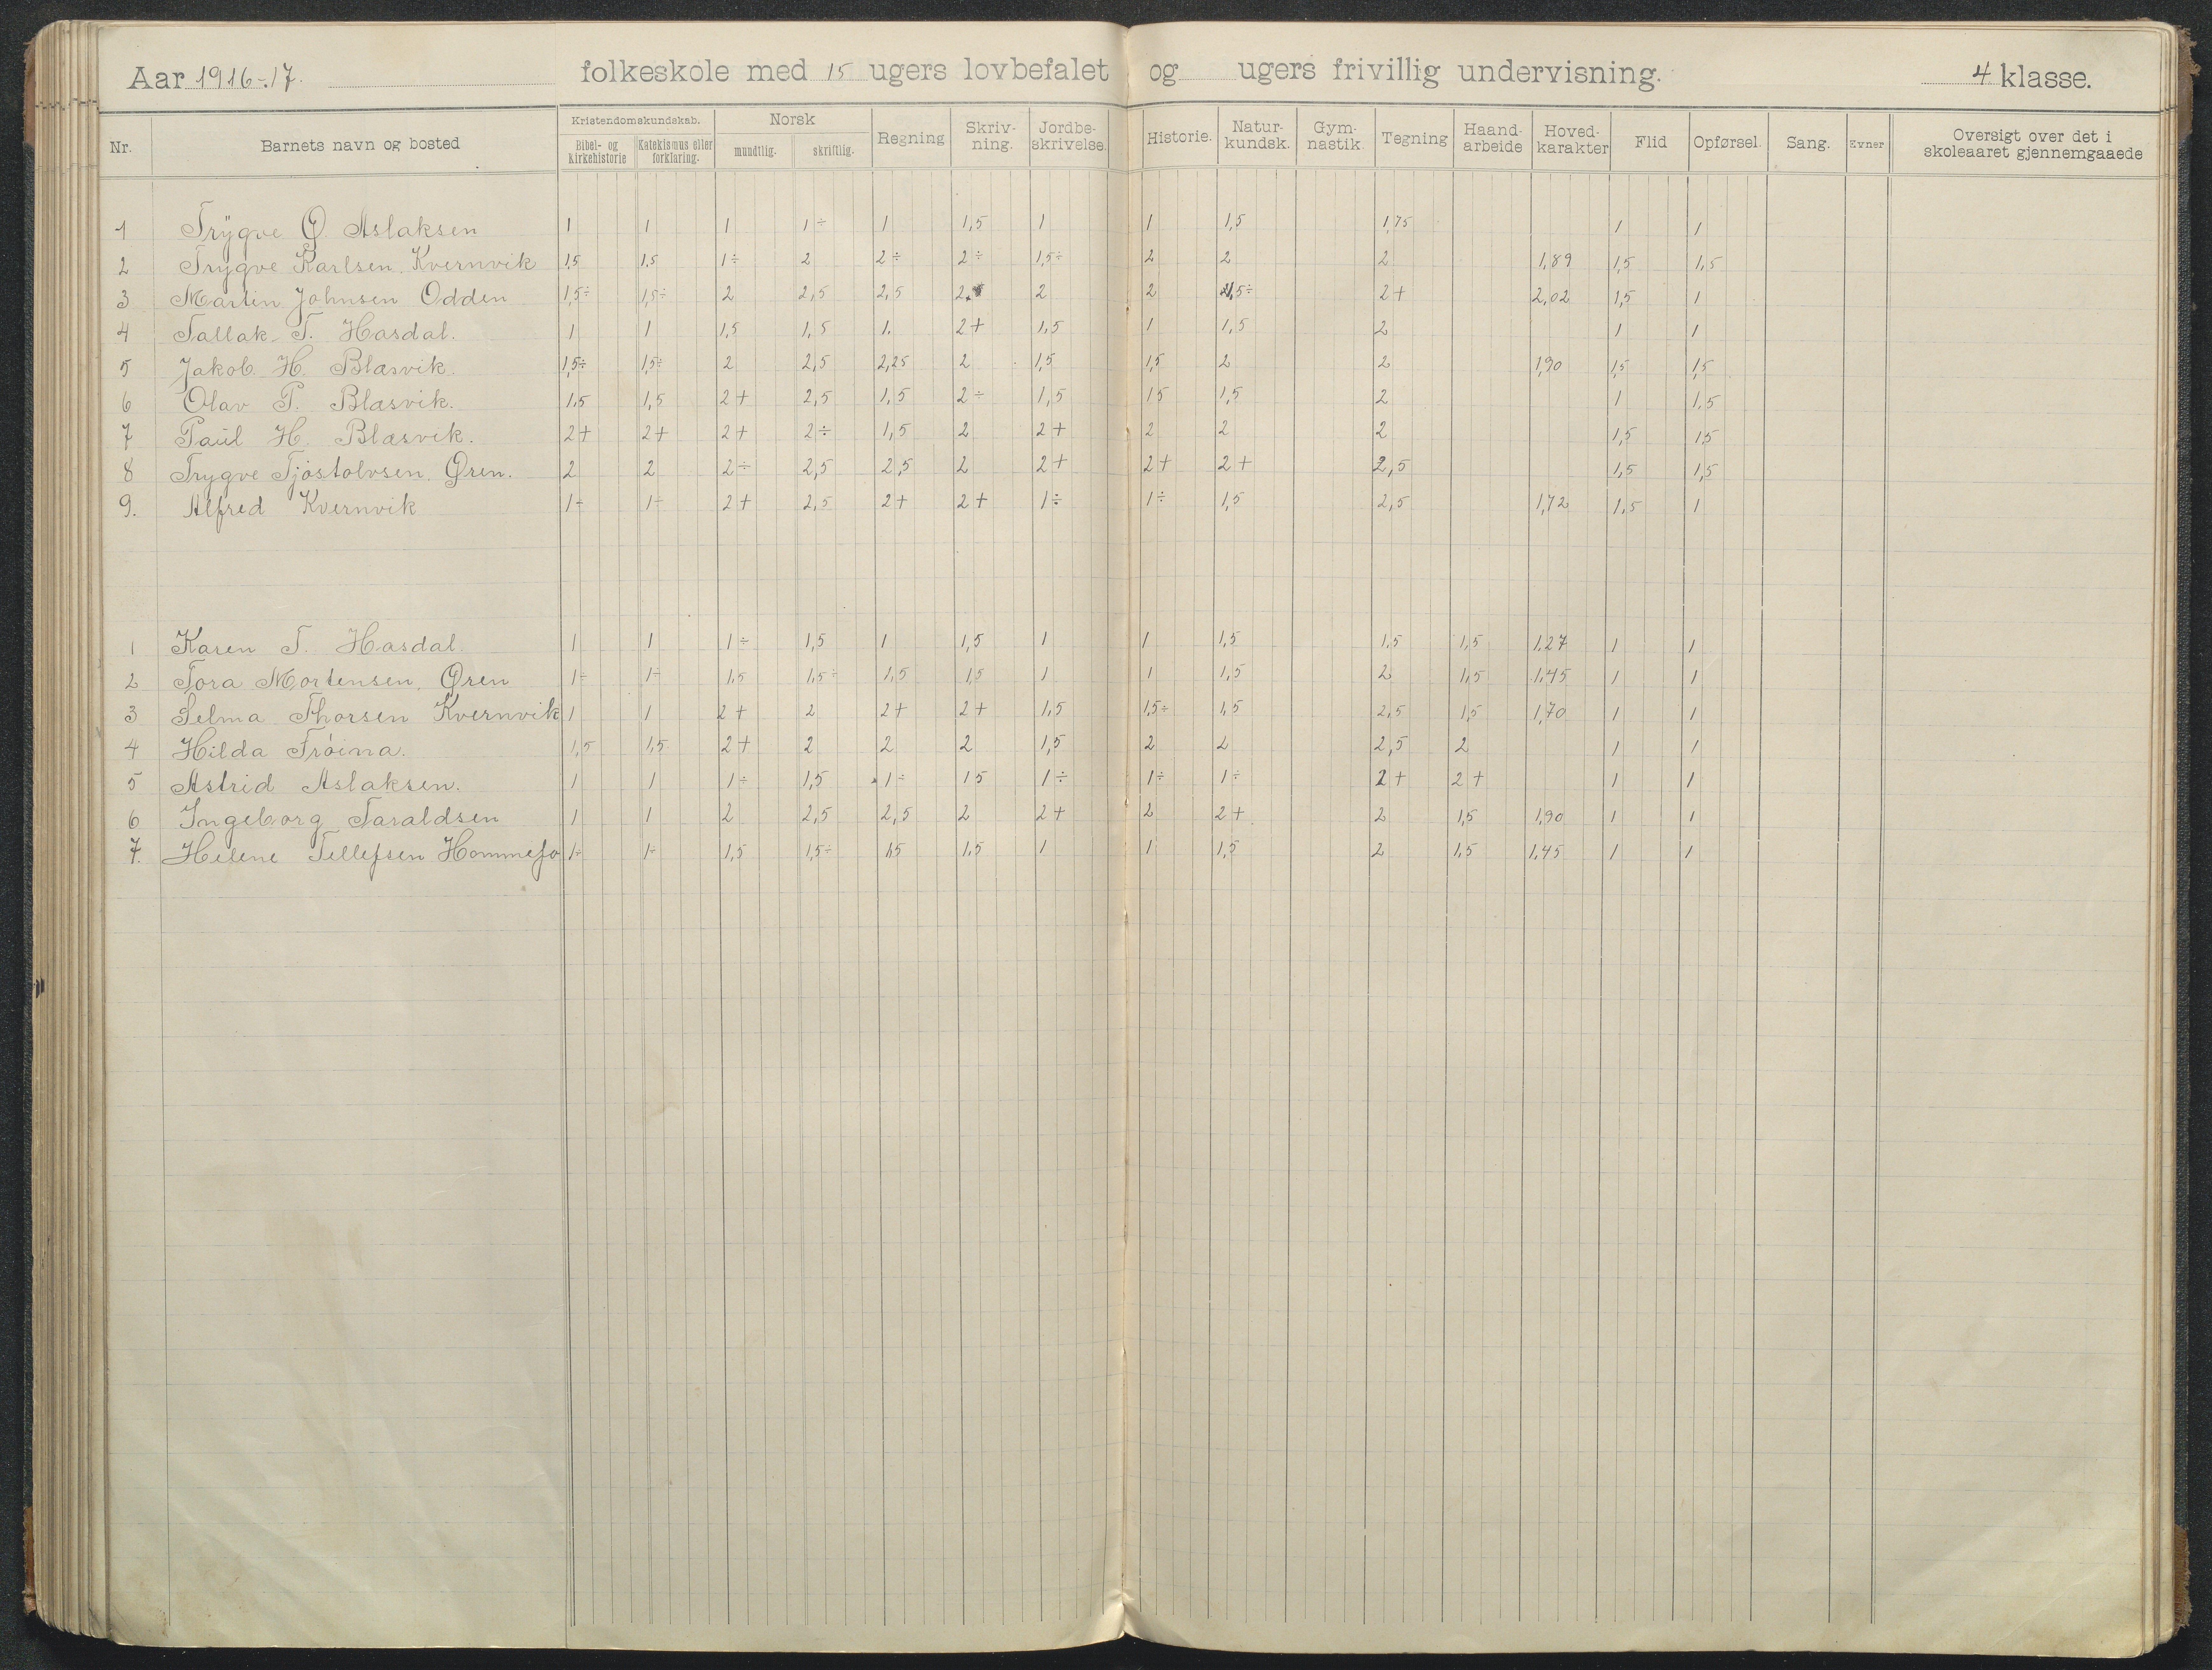 Aar 1916-17. folkeskole med 15 ugers lovbefalet og ugers frivillig undervisning. 4 klasse.
Nr. Barnets navn og bosted Kristendomskundskab. Bibel- og Kirkehistorie Katekismus eller forklaring. Norsk mundtlig. skriftlig. Regning Skriv-ning. Jordbe-skrivelse. Historie. Natur-kundsk. Gym-nastik. Tegning Haand-arbeide Hoved-karakter Flid Opførsel. Sang. Evner Oversigt over det i skoleaaret gjennemgaaede
1 Trygve O. Aslaksen 1 1 1 1÷ 1 1,5 1 1 1,5 1,75 1 1
2 Trygve Karlsen Kvernvik 1,5 1,5 1÷ 2 2÷ 2÷ 1,5÷ 2 2 2 1,89 1,5 1,5
3 Martin Johnsen Odden 1,5÷ 1,5÷ 2 2,5 2,5 2 2 2 1,5÷ 2+ 2,02 1,5 1
4 Tallak T. Hasdal. 1 1 1,5 1,5 1. 2+ 1,5 1 1,5 2 1 1
5 Jakob H. Blæsvik. 1,5÷ 1,5÷ 2 2,5 2,25 2 1,5 1,5 2 2 1,90 1,5 1,5
6 Olav P. Blæsvik. 1,5 1,5 2+ 2,5 1,5 2÷ 1,5 15 1,5 2 1 1,5
7 Paul H. Blæsvik. 2+ 2+ 2+ 2÷ 1,5 2 2+ 2 2 2 1,5 1,5
8 Trygve Tjøstolvsen Øren. 2 2 2÷ 2,5 2,5 2 2+ 2+ 2+ 2,5 1,5 1,5
9. Alfred Kvernvik 1÷ 1÷ 2+ 2,5 2+ 2+ 1÷ 1÷ 1,5 2,5 1,72 1,5 1
1 Karen T. Hasdal. 1 1 1÷ 1,5 1 1,5 1 1 1,5 1,5 1,5 1,27 1 1
2 Tora Mortensen Øren 1÷ 1÷ 1,5 1,5÷ 1,5 1,5 1 1 1,5 2 1,5 1,45 1 1
3 Selma Thorsen Kvernvik 1 1 2+ 2 2+ 2+ 1,5 1,5÷ 1,5 2,5 1,5 1,70 1 1
4 Hilda Trøina. 1,5 1,5 2+ 2 2 2 1,5 2 2 2,5 2 1 1
5 Astrid Aslaksen. 1 1 1÷ 1,5 1÷ 15 1÷ 1÷ 1÷ 2+ 2+ 1 1
6 Ingeborg Taraldsen 1 1 2 2,5 2,5 2 2+ 2 2+ 2 1,5 1,90 1 1
7. Helene Tellefsen Hommefo 1÷ 1÷ 1,5 1,5÷ 1,5 1,5 1 1 1,5 2 1,5 1,45 1 1